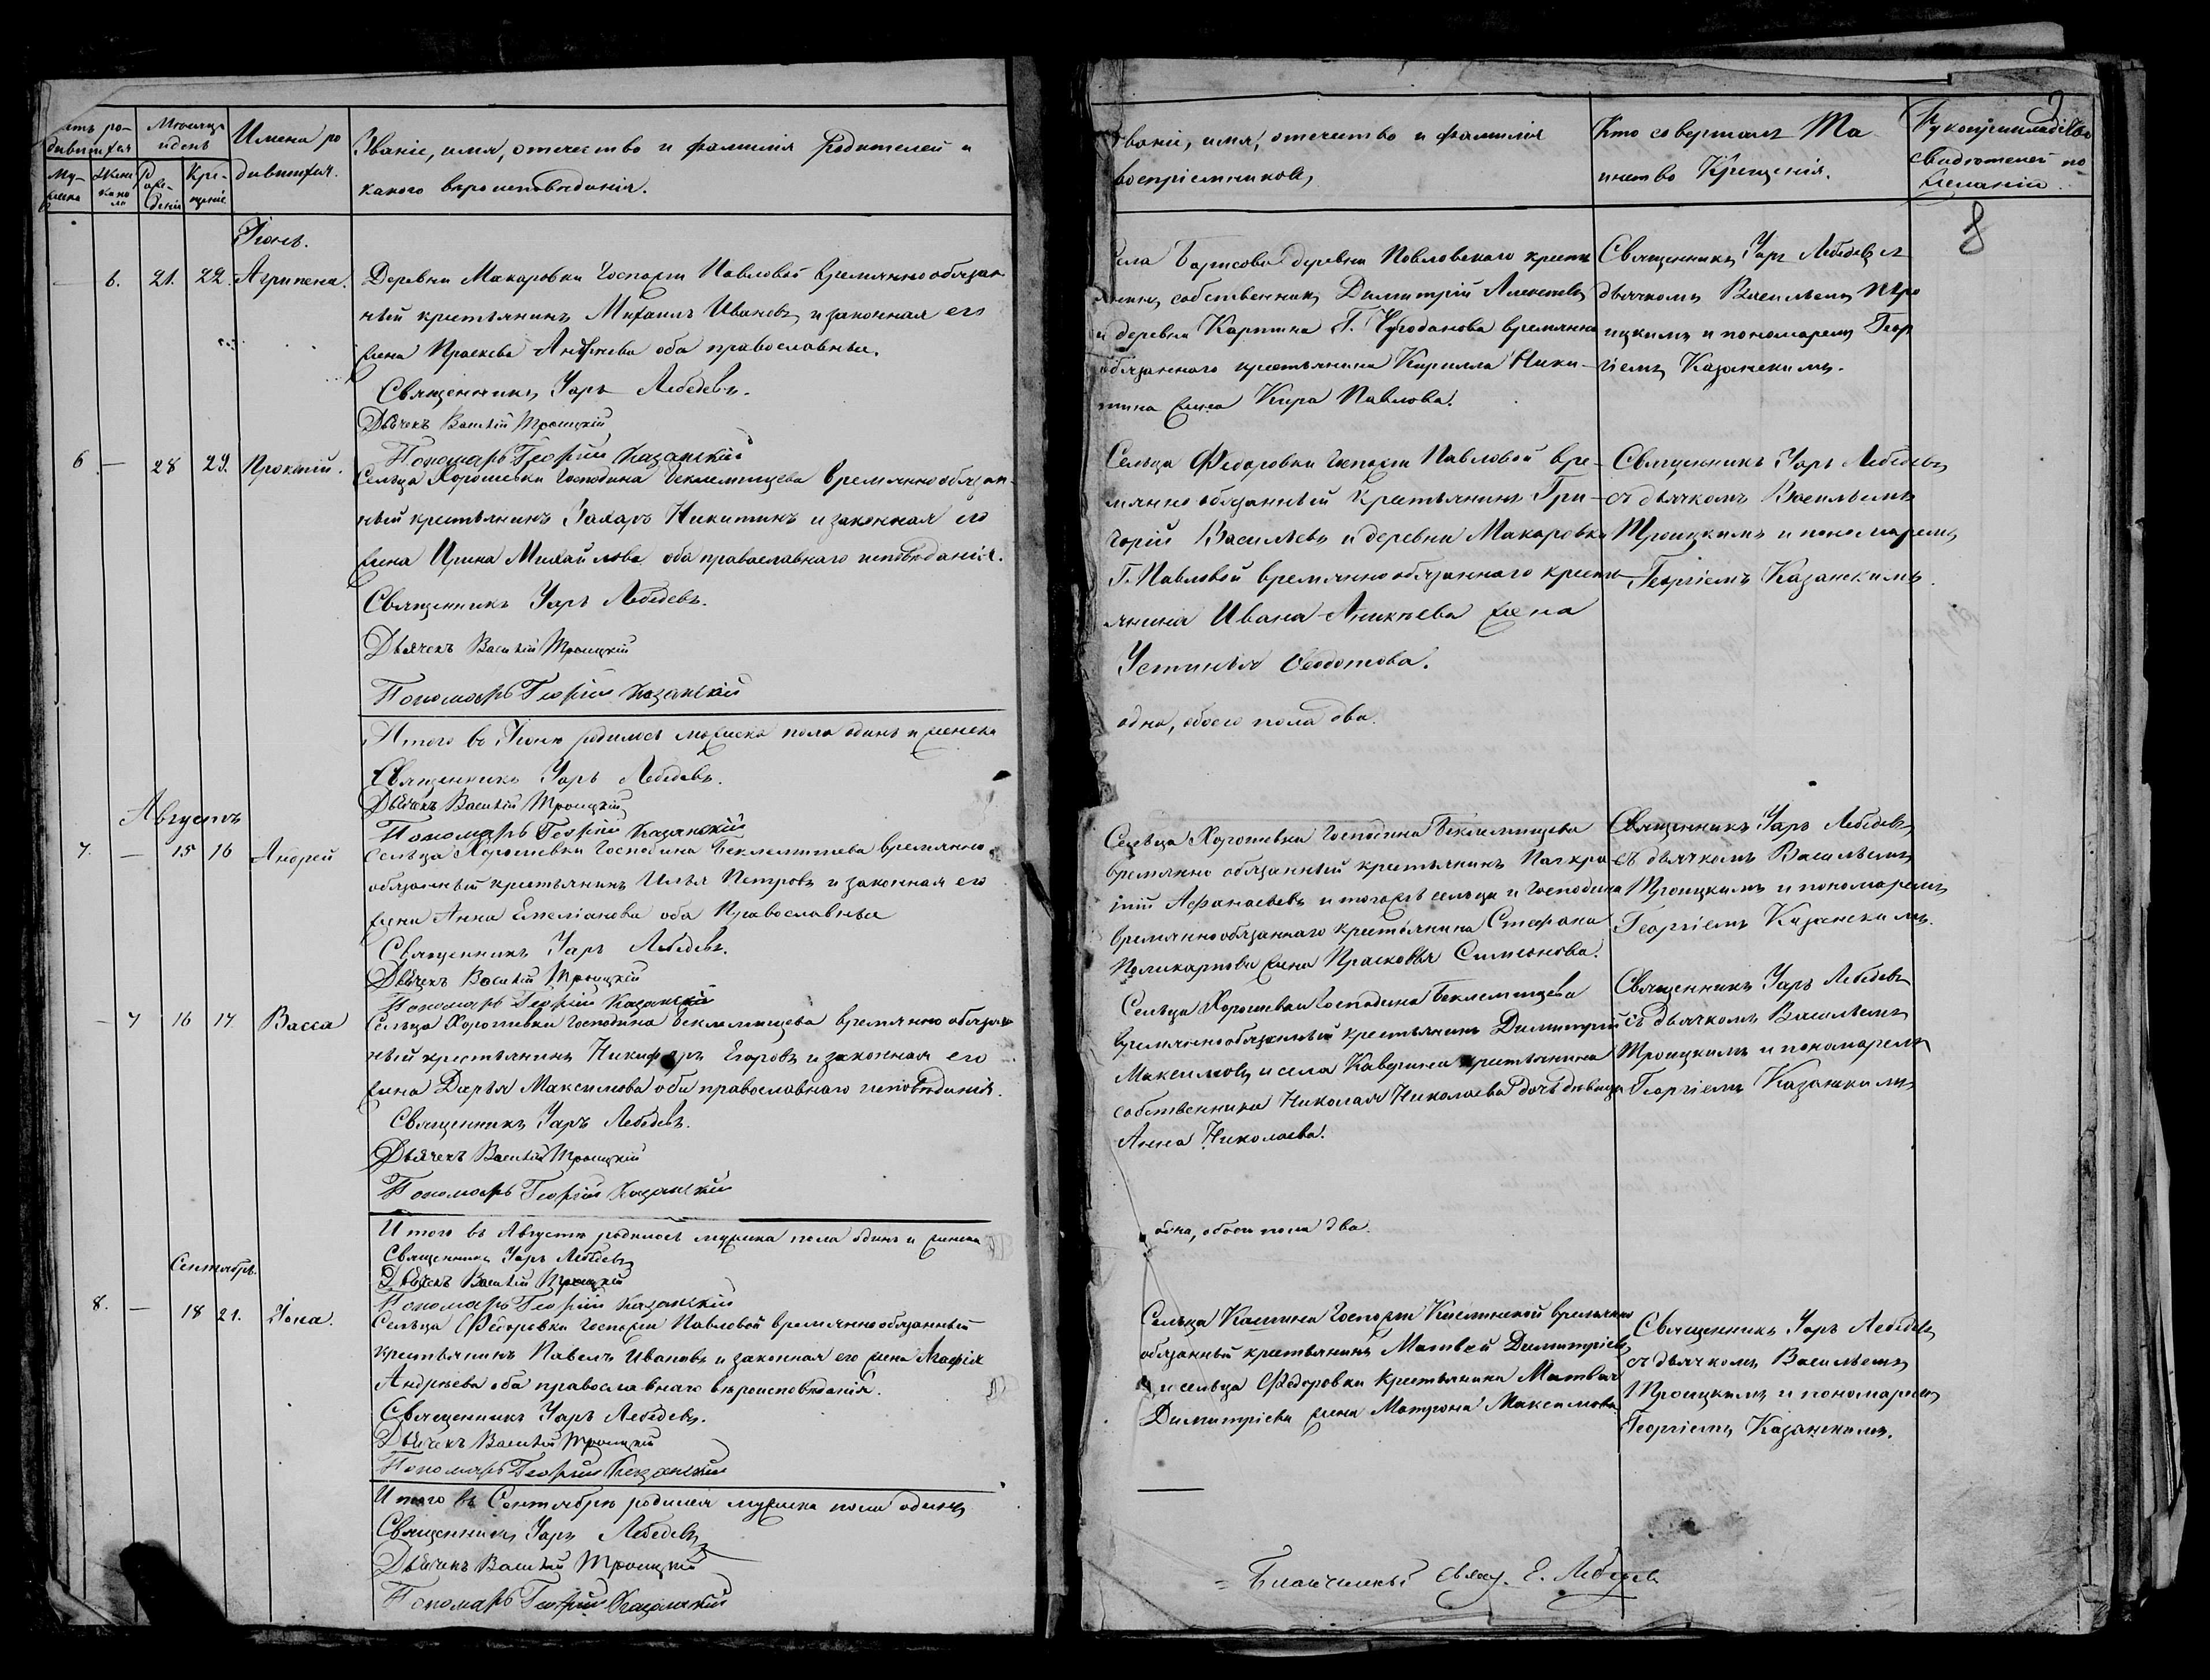 Мѣсяцъ
и день
Имена ро
дившихся.
Званіе, имя, отечество и фамилія Родителей и
какого вѣроисповѣданія.
Іюнь.
— 6. 21. 22. Агрипена.
Деревни Макаровки Госпожи Павловой временнообязан
ный крестьянинъ Михаилъ Ивановъ и законная его
жена оба православные.
Священникъ Уаръ Лебедевъ.
Дьячекъ Василій Троицкій
Пономарь Георгій Казанскій
6. — 28 29. Прокопій.
Сельца Хорошевки Господина Беклемищева временнообязан-
ный крестьянинъ Захаръ Никитинъ и законная его
жена Ирина Михайлова оба православнаго исповѣданія.
Священникъ Уаръ Лебедевъ.
Дьячекъ Василій Троицкій
Пономарь Георгій Казанскій
Итого въ Іюнѣ родилось мужеска пола одинъ и женска
Священникъ Уаръ Лебедевъ.
Дьячекъ Василій Троицкій
Пономарь Георгій Казанскій
Августъ
7. — 15 16 Андрей
Сельца Хорошевки Господина Беклемищева временно
обязанный крестьянинъ Илья Петровъ и законная его
жена Анна Емеліанова оба Православные
Священникъ Уаръ Лебедевъ.
Дьячекъ Василій Троицкій
Пономарь Георгій Казанскій
— 7 16 17. Васса
Сельца Хорошевки Господина Беклемищева временно обязан
ный крестьянинъ Никифоръ Егоровъ и законная его
жена Дарья Максимова оба православнаго исповѣданія.
Священникъ Уаръ Лебедевъ.
Дьячекъ Василій Троицкій
Пономарь Георгій Казанскій
Итого въ Августѣ родилось мужска пола одинъ и женска
Священникъ Уаръ Лебедевъ
Дьячекъ Василій Троицкій
Пономарь Георгій Казанскій
Сентябрь.
8. — 18 21. Іона.
Сельца Федоровки Госпожи Павловой временнообязанный
крестьянинъ Павелъ Ивановъ и законная его жена Агафія
Андрѣева оба православнаго вѣроисповѣданія.
Священникъ Уаръ Лебедевъ.
Дьячекъ Василій Троицкій
Пономарь Георгій Казанскій
Итого въ Сентябрѣ родился мужеска пола одинъ
Священникъ Уаръ Лебедевъ
Дьячекъ Василій Троицкій
Пономарь Георгій Казанскій
Званіе, имя, отечество и фамилія
воспріемниковъ,
Кто совершалъ Та
инство Крещенія.
Рукоприкладство
свидѣтелей по
желанію.
8
Села Борисова деревни Павловскаго кресть
янинъ собственникъ Димитрій Алексѣевъ
и деревни Карпина Г. Чубаданова временно
обязаннаго крестьянина Кирилла Ники-
тина жена Кира Павлова.
Священникъ Уаръ Лебедевъ съ
дьячкомъ Васильемъ Тро
ицкимъ и пономаремъ Геор
гіемъ Казанскимъ.
Сельца Федоровки Госпожи Павловой вре-
менно обязанный крестьянинъ Гри-
горій Васильевъ и деревни Макаровки
Г. Павловой временнообязаннаго кресть
янина Ивана Аникѣева жена
Устинья Ѳеодотова.
Священникъ Уаръ Лебедевъ
съ дьячкомъ Васильемъ
Троицкимъ и пономаремъ
Георгіемъ Казанскимъ.
одна, обоего пола два.
Сельца Хорошевки Господина Беклемищева
временно обязанный крестьянинъ Панкра
тій Афанасьевъ и тогожъ сельца и Господина
временнообязаннаго крестьянина Стефана
Поликарпова жена Прасковья Симеонова.
Священникъ Уаръ Лебедевъ
съ дьячкомъ Васильемъ
Троицкимъ и пономаремъ
Георгіемъ Казанскимъ.
Сельца Хорошевки Господина Беклемищева
временнообязанный крестьянинъ Димитрій
Максимовъ и села Каверина крестьянина
собственника Николая Николаева дочь дѣвица
Анна Николаева.
Священникъ Уаръ Лебедевъ
съ дьячкомъ Васильемъ
Троицкимъ и пономаремъ
Георгіемъ Казанскимъ
одна, обоего пола два.
Сельца Кашина Госпожи временно
обязанный крестьянинъ Матвей Димитріевъ
и сельца Федоровки крестьянина Матвея
Димитріева жена Матрона Максимова.
Священникъ Уаръ Лебедевъ
съ дьячкомъ Васильемъ
Троицкимъ и пономаремъ
Георгіемъ Казанскимъ.
Благочинный Свящ. Е. Лебедев